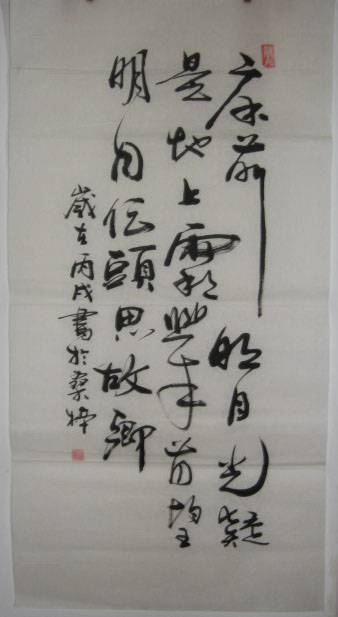 床前明月光疑
是地上霜舉首望
明月低頭思故鄉
歲在丙戌書於桑梓